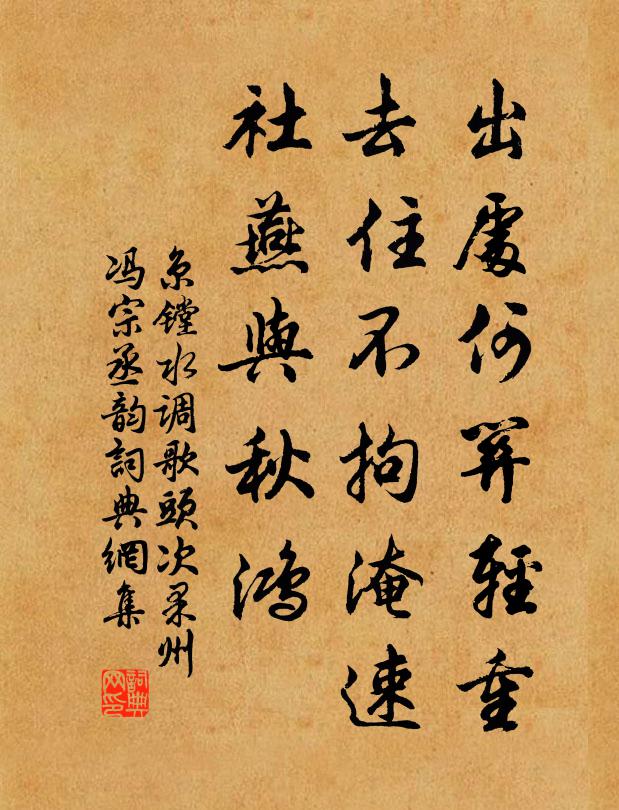 出處何算輕重
去住不拘淹速
社燕與秋鴻
京镗水调歌頭次果州
冯宗丞韵詞典網集
詞典
网印